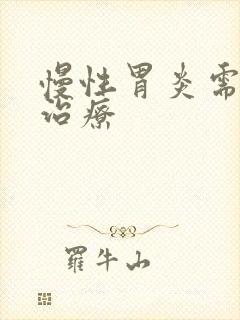 慢性胃炎需
治疗
罗牛山